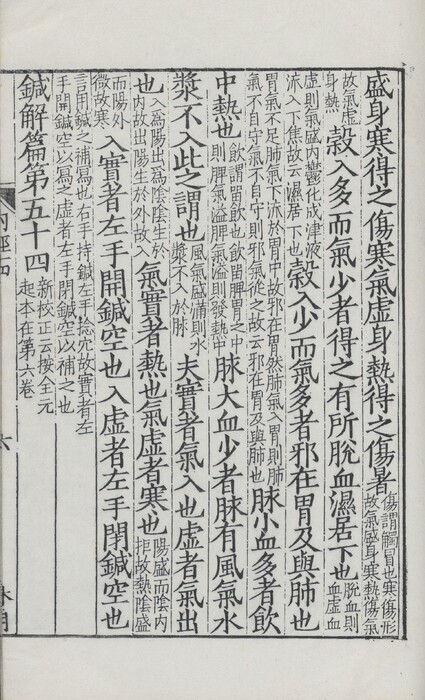 盛身寒得之傷寒氣虛身熱得之傷暑傷謂觸冒也寒傷形故氣盛身寒熱傷氣
故氣虛身熱穀入多而氣少者得之有所脫血濕居下也脫血則血虛血
虛則氣盛内鬱化成津液流入下焦故云濕居下也穀入少而氣多者邪在胃及與肺也
氣不足肺氣下流於胃中故邪在胃然肺氣入胃則肺氣不自守氣不自守則邪氣從之故云邪在胃及與肺也脉小血多者飲
中熱也飲謂留飲也飲留脾胃之中則脾氣溢脾氣溢則發熱中脉大血少者脉有風氣水
漿不入此之謂也風氣盛滿則水漿不入於脉夫實者氣入也虛者氣出
也入爲陽出爲陰陰生於内故出陽生於外故入氣實者熱也氣虛者寒也陽盛而陰内拒故熱陰盛
而陽外微故寒入實者左手開鍼空也入虛者左手閉鍼空也
言用鍼之補瀉也右手持鍼左手捻穴故實者左手開鍼空以瀉之虛者左手閉鍼空以補之也
鍼解篇第五十四新校正云按全元起本在第六卷
六